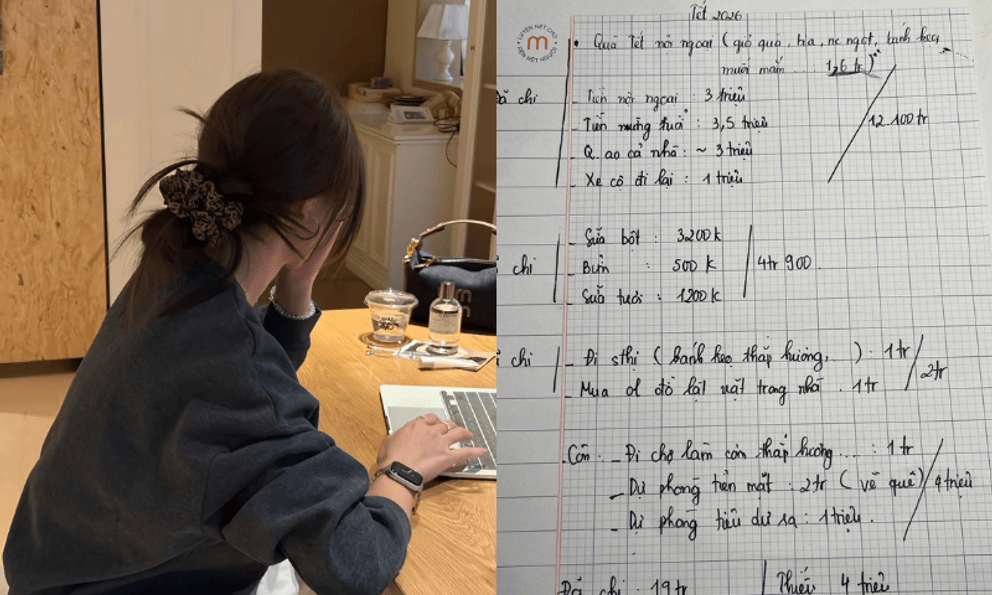 Tết 2026
LUYỆN NÉT CHỮ
m
RÈN NẾT NGƯỜI
• Quà Tết nội ngoại (giỏ quà, bia, nc ngọt, bánh kẹo,
mười mâm ... 1,6 tr)
chi
- Tiền nội ngoại : 3 triệu
- Tiền mừng tuổi : 3,5 triệu
- Q. áo cả nhà : ~ 3 triệu
- Xe cộ đi lại : 1 triệu
12.100 tr
- Sữa bột : 3200 k
chi
- Bỉm : 500 k
- Sữa tươi : 1200 k
4tr 900
chi
- Đi sthị ( bánh kẹo thắp hương, ... ) : 1 tr
- Mua đồ lặt vặt trong nhà . 1 tr
2tr
- Còn : - Đi chợ làm cơm thắp hương ... : 1 tr
- Dự phòng tiền mặt : 2tr ( về quê)
- Dự phòng tiêu dư ra : 1 triệu .
4 triệu
Đã chi : 19 tr
Thiếu 4 triệu